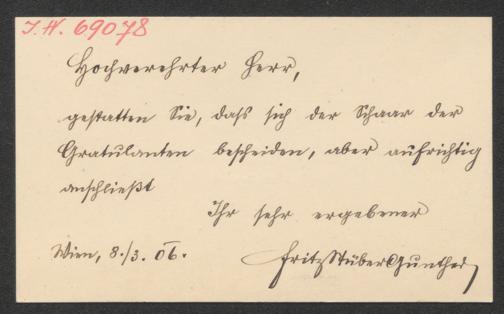 I.N. 69078
Hochverehrter Herr,
gestatten Sie, dass sich der Schaar der
Gratulanten bescheiden, aber aufrichtig
anschließt
Ihr sehr ergebener
Wien, 8./3. 06.
Fritz Stüber Gunther